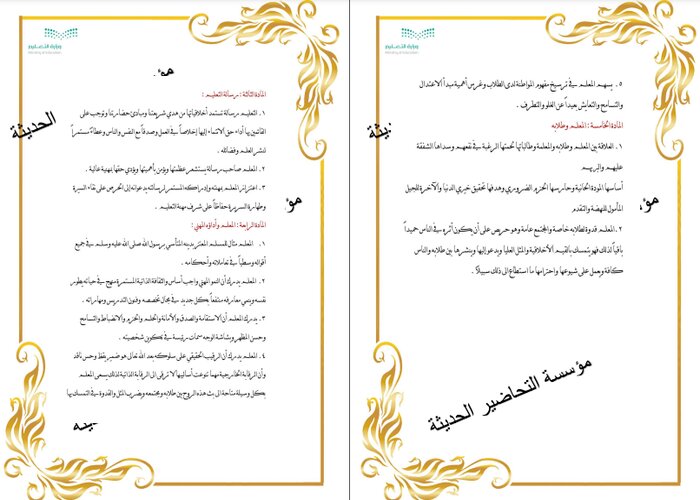 وزارة التعليم
المادة الثالثة : رسالة التعليم :
١. التعليم رسالة تستمد أخلاقياتها من هدي شريعتنا ومبادئ حضارتنا وتوجب على
القائمين بها أداء حق الانتماء إليها إخلاصاً في العمل وصدقاً مع النفس والناس وعطاءً مستمراً
لنشر العلم وفضائله .
٢. المعلم صاحب رسالة يستشعر عظمتها ويؤمن بأهميتها ويؤدي حقها بمهنية عالية .
٣. اعتزاز المعلم بمهنته وإدراكه المستمر لرسالته يدعوانه إلى الحرص على نقاء السيرة
وطهارة السريرة حفاظاً على شرف مهنة التعليم .
المادة الرابعة : المعلم وأداؤه المهني :
١. المعلم مثال للمسلم المعتز بدينه المتأسي برسول الله صلى الله عليه وسلم في جميع
أقواله وسطياً في تعاملاته وأحكامه .
٢. المعلم يدرك أن النمو المهني واجب أساس والثقافة الذاتية المستمرة منهج في حياته يطور
نفسه وينمي معارفه منتفعاً بكل جديد في مجال تخصصه وفنون التدريس ومهاراته .
٣. يدرك المعلم أن الاستقامة والصدق والأمانة والحلم والحزم والانضباط والتسامح
وحسن المظهر وبشاشة الوجه سمات رئيسة في تكوين شخصيته .
٤. المعلم يدرك أن الرقيب الحقيقي على سلوكه بعد الله تعالى هو ضمير يقظ وحس ناقد
وأن الرقابة الخارجية مهما تنوعت أساليبها لا ترقى إلى الرقابة الذاتية لذلك يسعى المعلم
بكل وسيلة متاحة إلى بث هذه الروح بين طلابه ومجتمعه ويضرب المثل والقدوة في التمسك بها
الحديثة
وزارة التعليم
٥. يسهم المعلم في ترسيخ مفهوم المواطنة لدى الطلاب وغرس أهمية مبدأ الاعتدال
والتسامح والتعايش بعيداً عن الغلو والتطرف .
المادة الخامسة : المعلم وطلابه
١. العلاقة بين المعلم وطلابه والمعلمة وطالباتها لحمتها الرغبة في نفعهم وسداها الشفقة
عليهم والبر بهم
أساسها المودة الحانية وحارسها الحزم الضروري وهدفها تحقيق خيري الدنيا والآخرة للجيل
المأمول للنهضة والتقدم
٢. المعلم قدوة لطلابه خاصة والمجتمع عامة وهو حريص على أن يكون أثره في الناس حميداً
باقياً لذلك فهو يتمسك بالقيم الأخلاقية والمثل العليا ويدعو إليها وينشرها بين طلابه والناس
كافة ويعمل على شيوعها واحترامها ما استطاع إلى ذلك سبيلاً .
مؤسسة التحاضير الحديثة